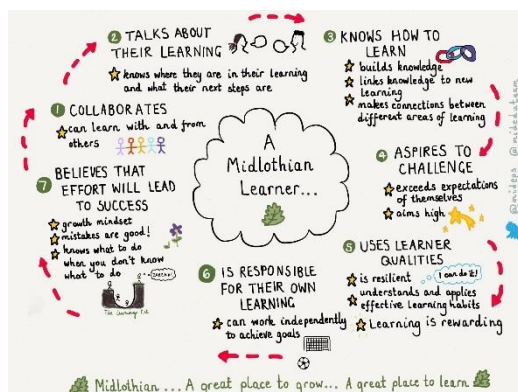 A
Midlothian
Learner...
1 COLLABORATES
can learn with and from
others
2 TALKS ABOUT
THEIR LEARNING
knows where they are in their learning
and what their next steps are
3 KNOWS HOW TO
LEARN
builds knowledge
links knowledge to new
learning
makes connections between
different areas of learning
4 ASPIRES TO
CHALLENGE
exceeds expectations
of themselves
aims high
5 USES LEARNER
QUALITIES
is resilient
I can do it!
understands and applies
effective learning habits
Learning is rewarding
6 IS RESPONSIBLE
FOR THEIR OWN
LEARNING
can work independently
to achieve goals
7 BELIEVES THAT
EFFORT WILL LEAD
TO SUCCESS
growth mindset
mistakes are good!
knows what to do
when you don't know
what to do
The Learning Pit
@mideps @midedateam
Midlothian ... A great place to grow... A great place to learn